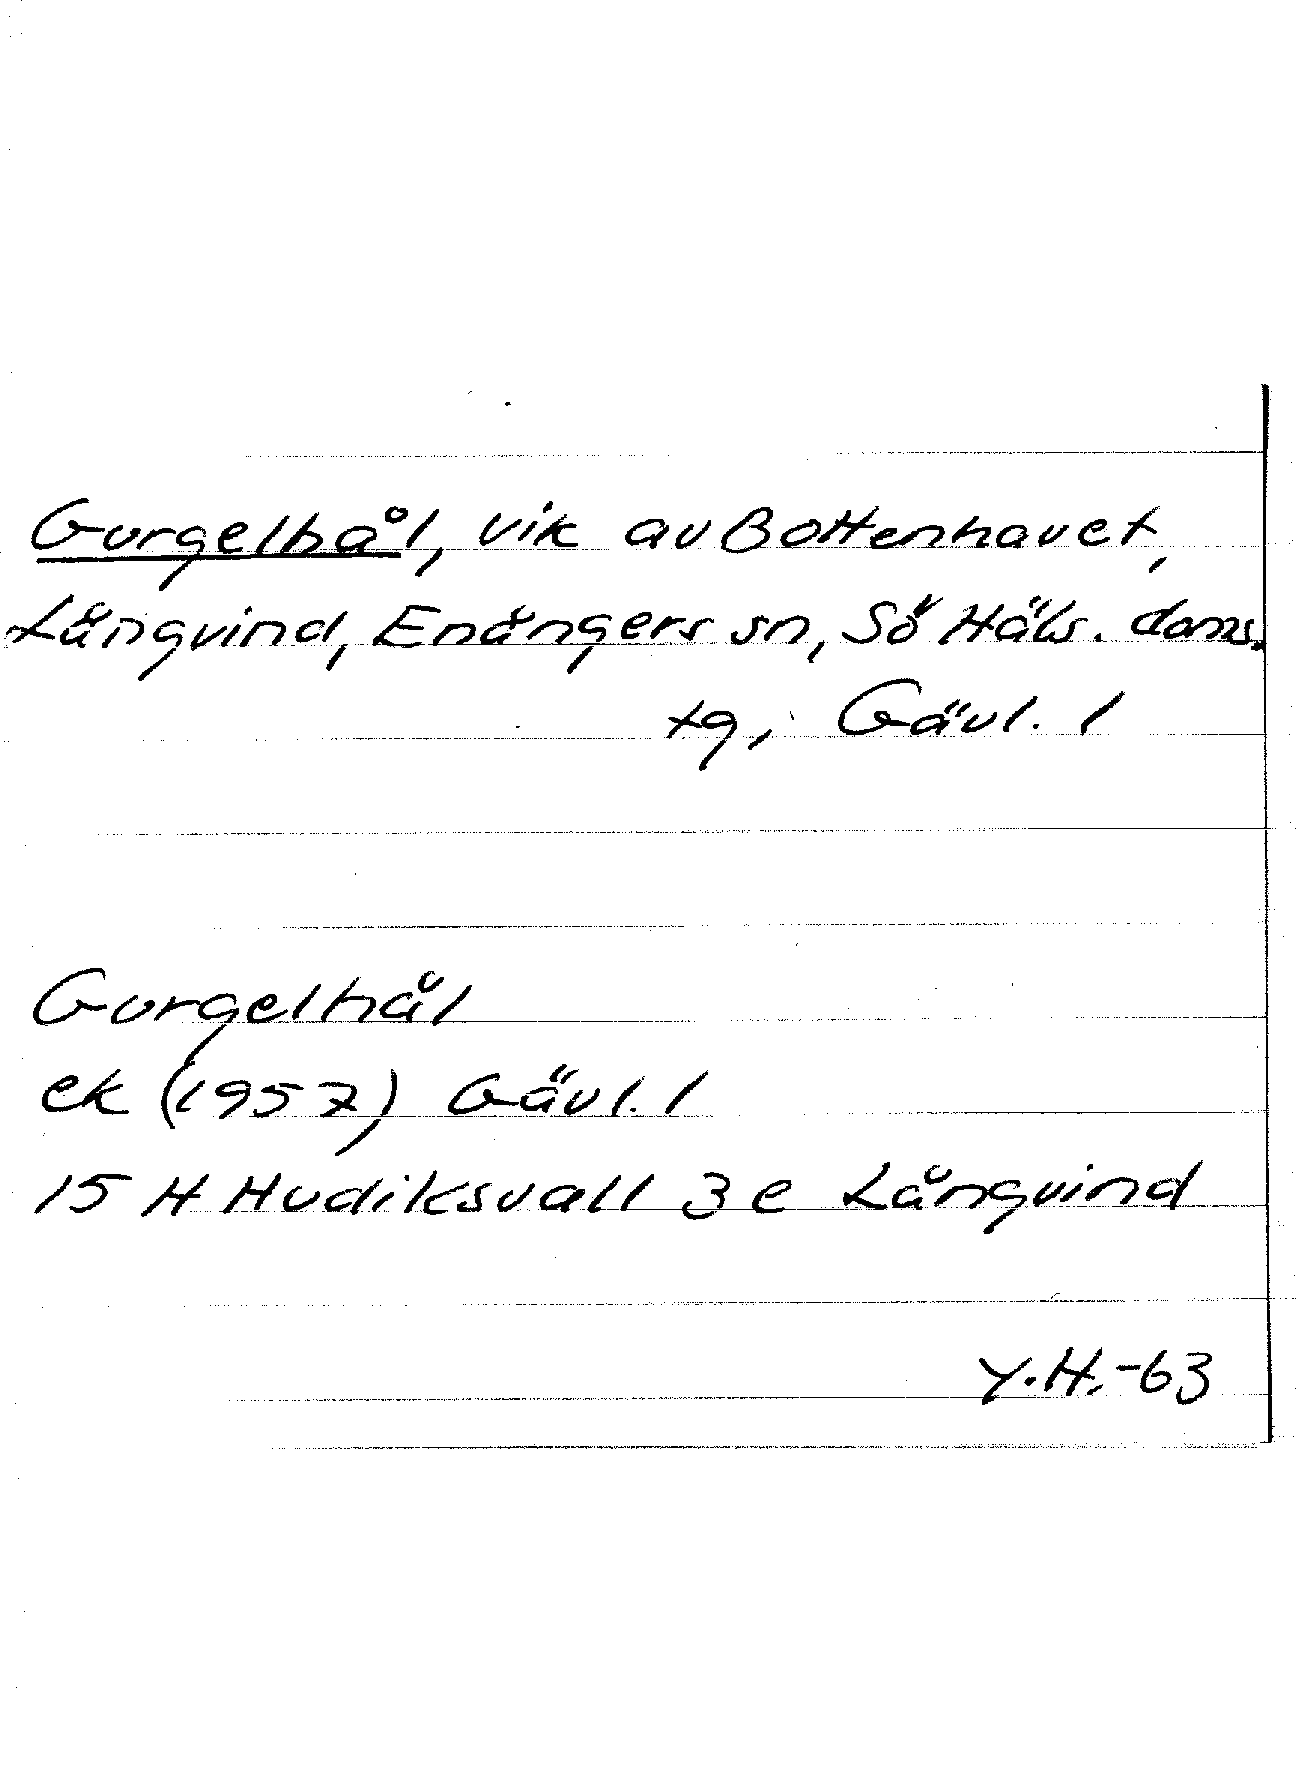 Gurgelhål, vik av Bottenhavet,
Långvind, Enångers sn, Sö Häls. doms.
tg, Gävl. l
Gurgelhål
ek (1957) Gävl. l
15 H Hudiksvall 3 e Långvind
Y.H.-63